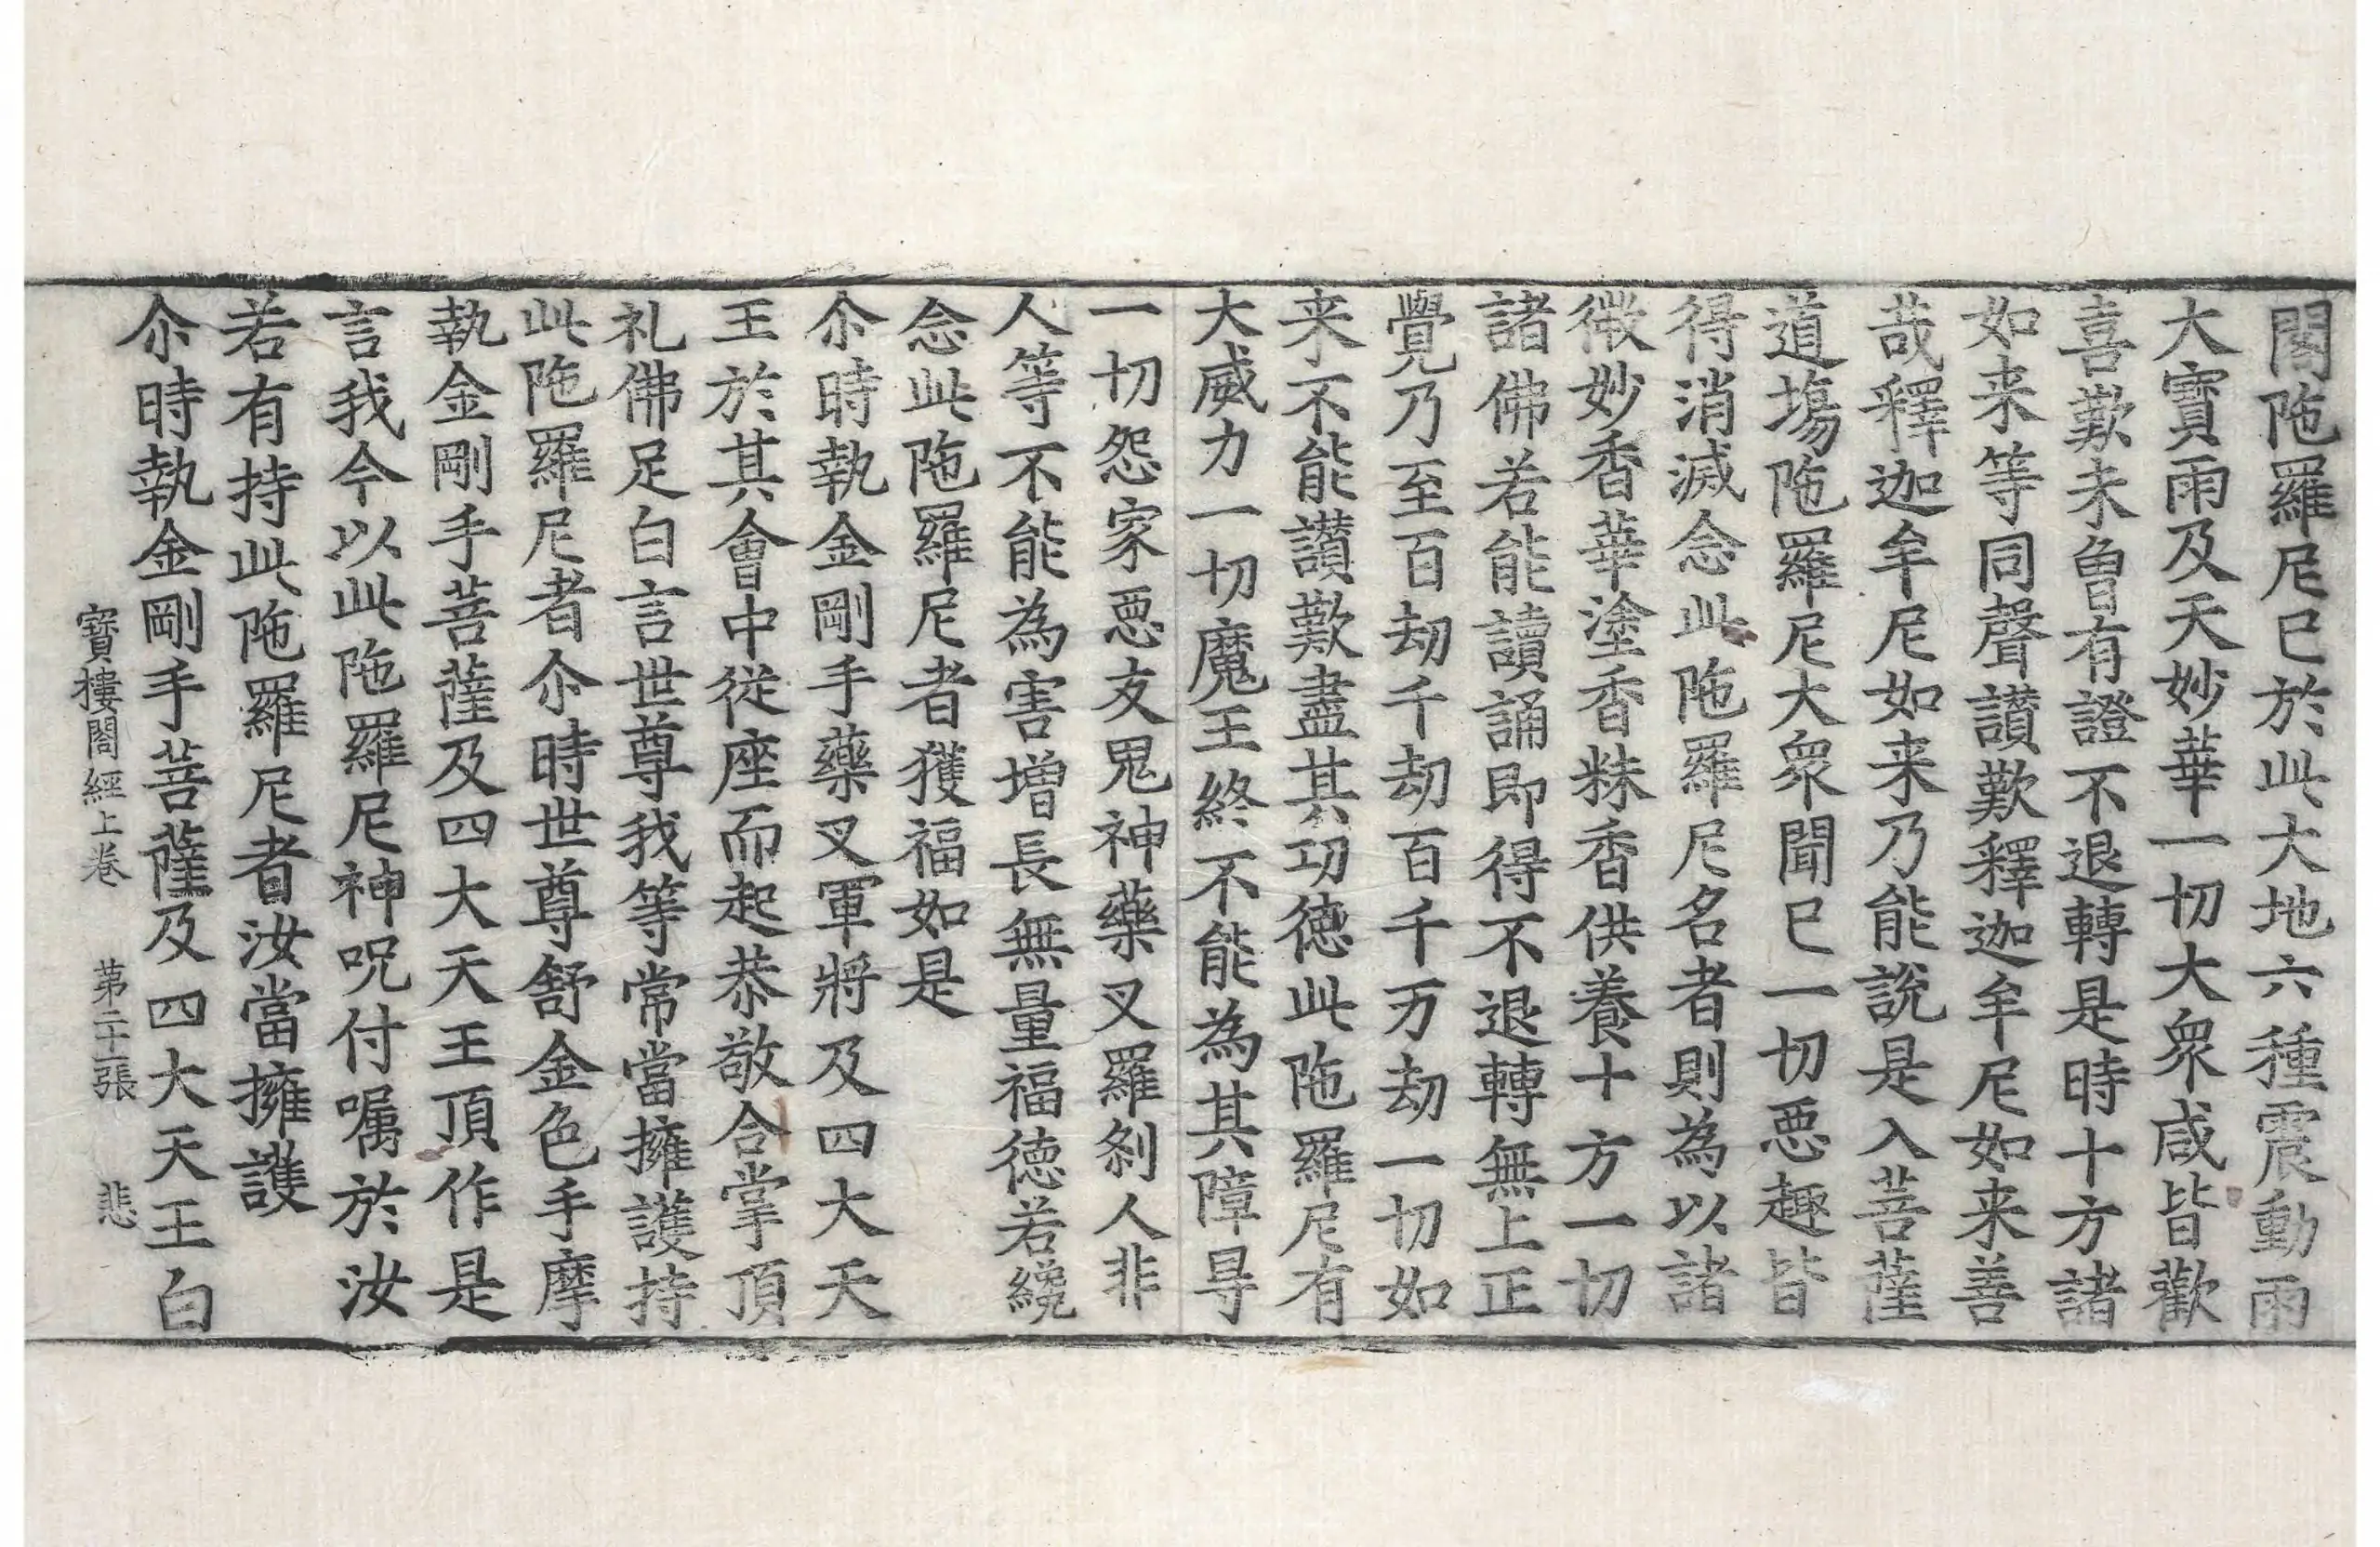 閣陁羅尼已於此大地六種震動雨
大寳雨及天妙華一切大衆咸皆歡
喜歎未曾有證不退轉是時十方諸
如来等同聲讃歎釋迦牟尼如来善
哉釋迦牟尼如来乃能說是入菩薩
道塲陁羅尼大衆聞已一切惡趣皆
得消滅念此陁羅尼名者則為以諸
微妙香華塗香粖香供養十方一切
諸佛若能讀誦即得不退轉無上正
覺乃至百劫千劫百千万劫一切如
来不能讃歎盡其功德此陁羅尼有
大威力一切魔王終不能為其障㝵
一切怨家惡友鬼神藥叉羅剎人非
人等不能為害增長無量福德若纔
念此陁羅尼者獲福如是
尒時執金剛手藥叉軍將及四大天
王於其會中從座而起恭敬合掌頂
礼佛足白言世尊我等常當擁護持
此陁羅尼者尒時世尊舒金色手摩
執金剛手菩薩及四大天王頂作是
言我今以此陁羅尼神呪付嘱於汝
若有持此陁羅尼者汝當擁護
尒時執金剛手菩薩及四大天王白
寳樓閣經上卷 第二十一張 悲